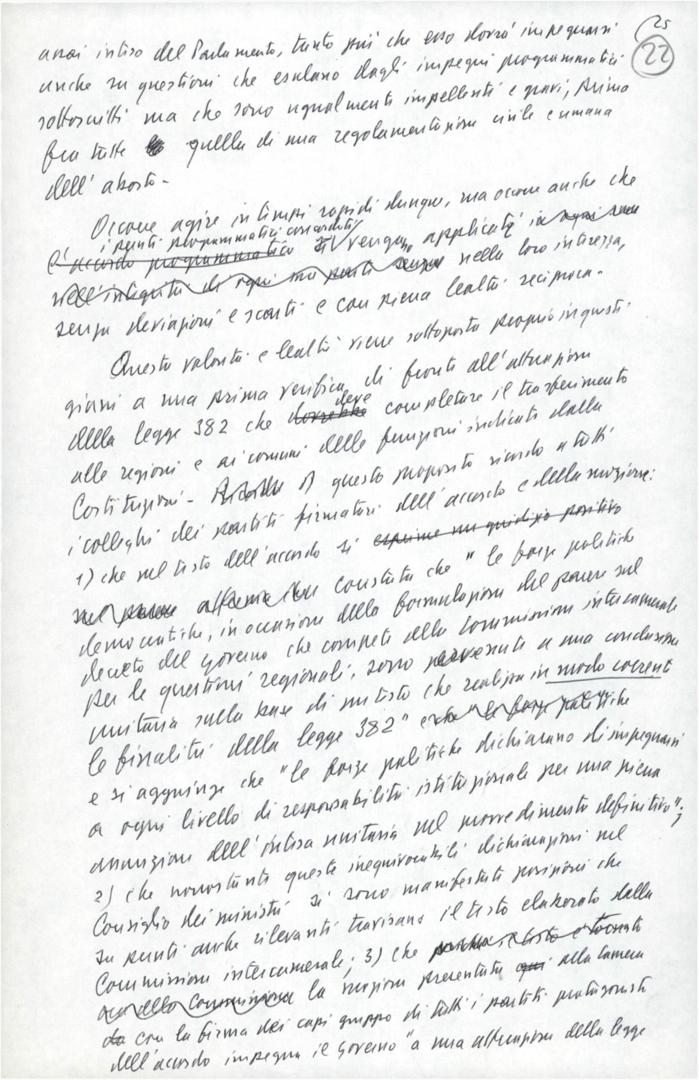 25
22
anzi intiso del Parlamento, tanto più che esso dovrà impegnarsi
anche su questioni che esulano dagli impegni programmatici
sottoscritti ma che sono ugualmente impellenti e gravi; prima
fra tutte quella di una regolamentazione civile e umana
dell'aborto -
Occorre agire in tempi rapidi dunque, ma occorre anche che
i punti programmatici concordati
l'accordo programmatico si vengano applicati in ogni sua
nell'integrità di ogni sua parte senza nella loro interezza,
senza deviazioni e sconti e con piena lealtà reciproca -
Questa volontà e lealtà viene sottoposta proprio in questi
giorni a una prima verifica, di fronte all'attuazione
deve
della legge 382 che dovrebbe completare il trasferimento
alle regioni e ai comuni delle funzioni indicate dalla
Costituzione - A questo proposito ricordo a tutti
i colleghi dei partiti firmatari dell'accordo e della mozione:
1) che nel testo dell'accordo si esprime un giudizio positivo
constata che " le forze politiche
democratiche, in occasione della formulazione del parere sul
decreto del Governo che compete alla Commissione intercamerale
per le questioni regionali, sono pervenute a una conclusione
unitaria sulla base di un testo che realizza in modo coerente
le finalità della legge 382" e che "le forze politiche
e si aggiunge che "le forze politiche dichiarano di impegnarsi
a ogni livello di responsabilità istituzionale per una piena
assunzione dell'intesa unitaria nel provvedimento definitivo";
2) che nonostante queste inequivocabili dichiarazioni nel
Consiglio dei ministri si sono manifestate posizioni che
su punti anche rilevanti travisano il testo elaborato dalla
Commissione intercamerale; 3) che
la mozione presentata qui alla Camera
da con la firma dei capi gruppo di tutti i partiti protagonisti
dell'accordo impegna il Governo "a una attuazione della legge